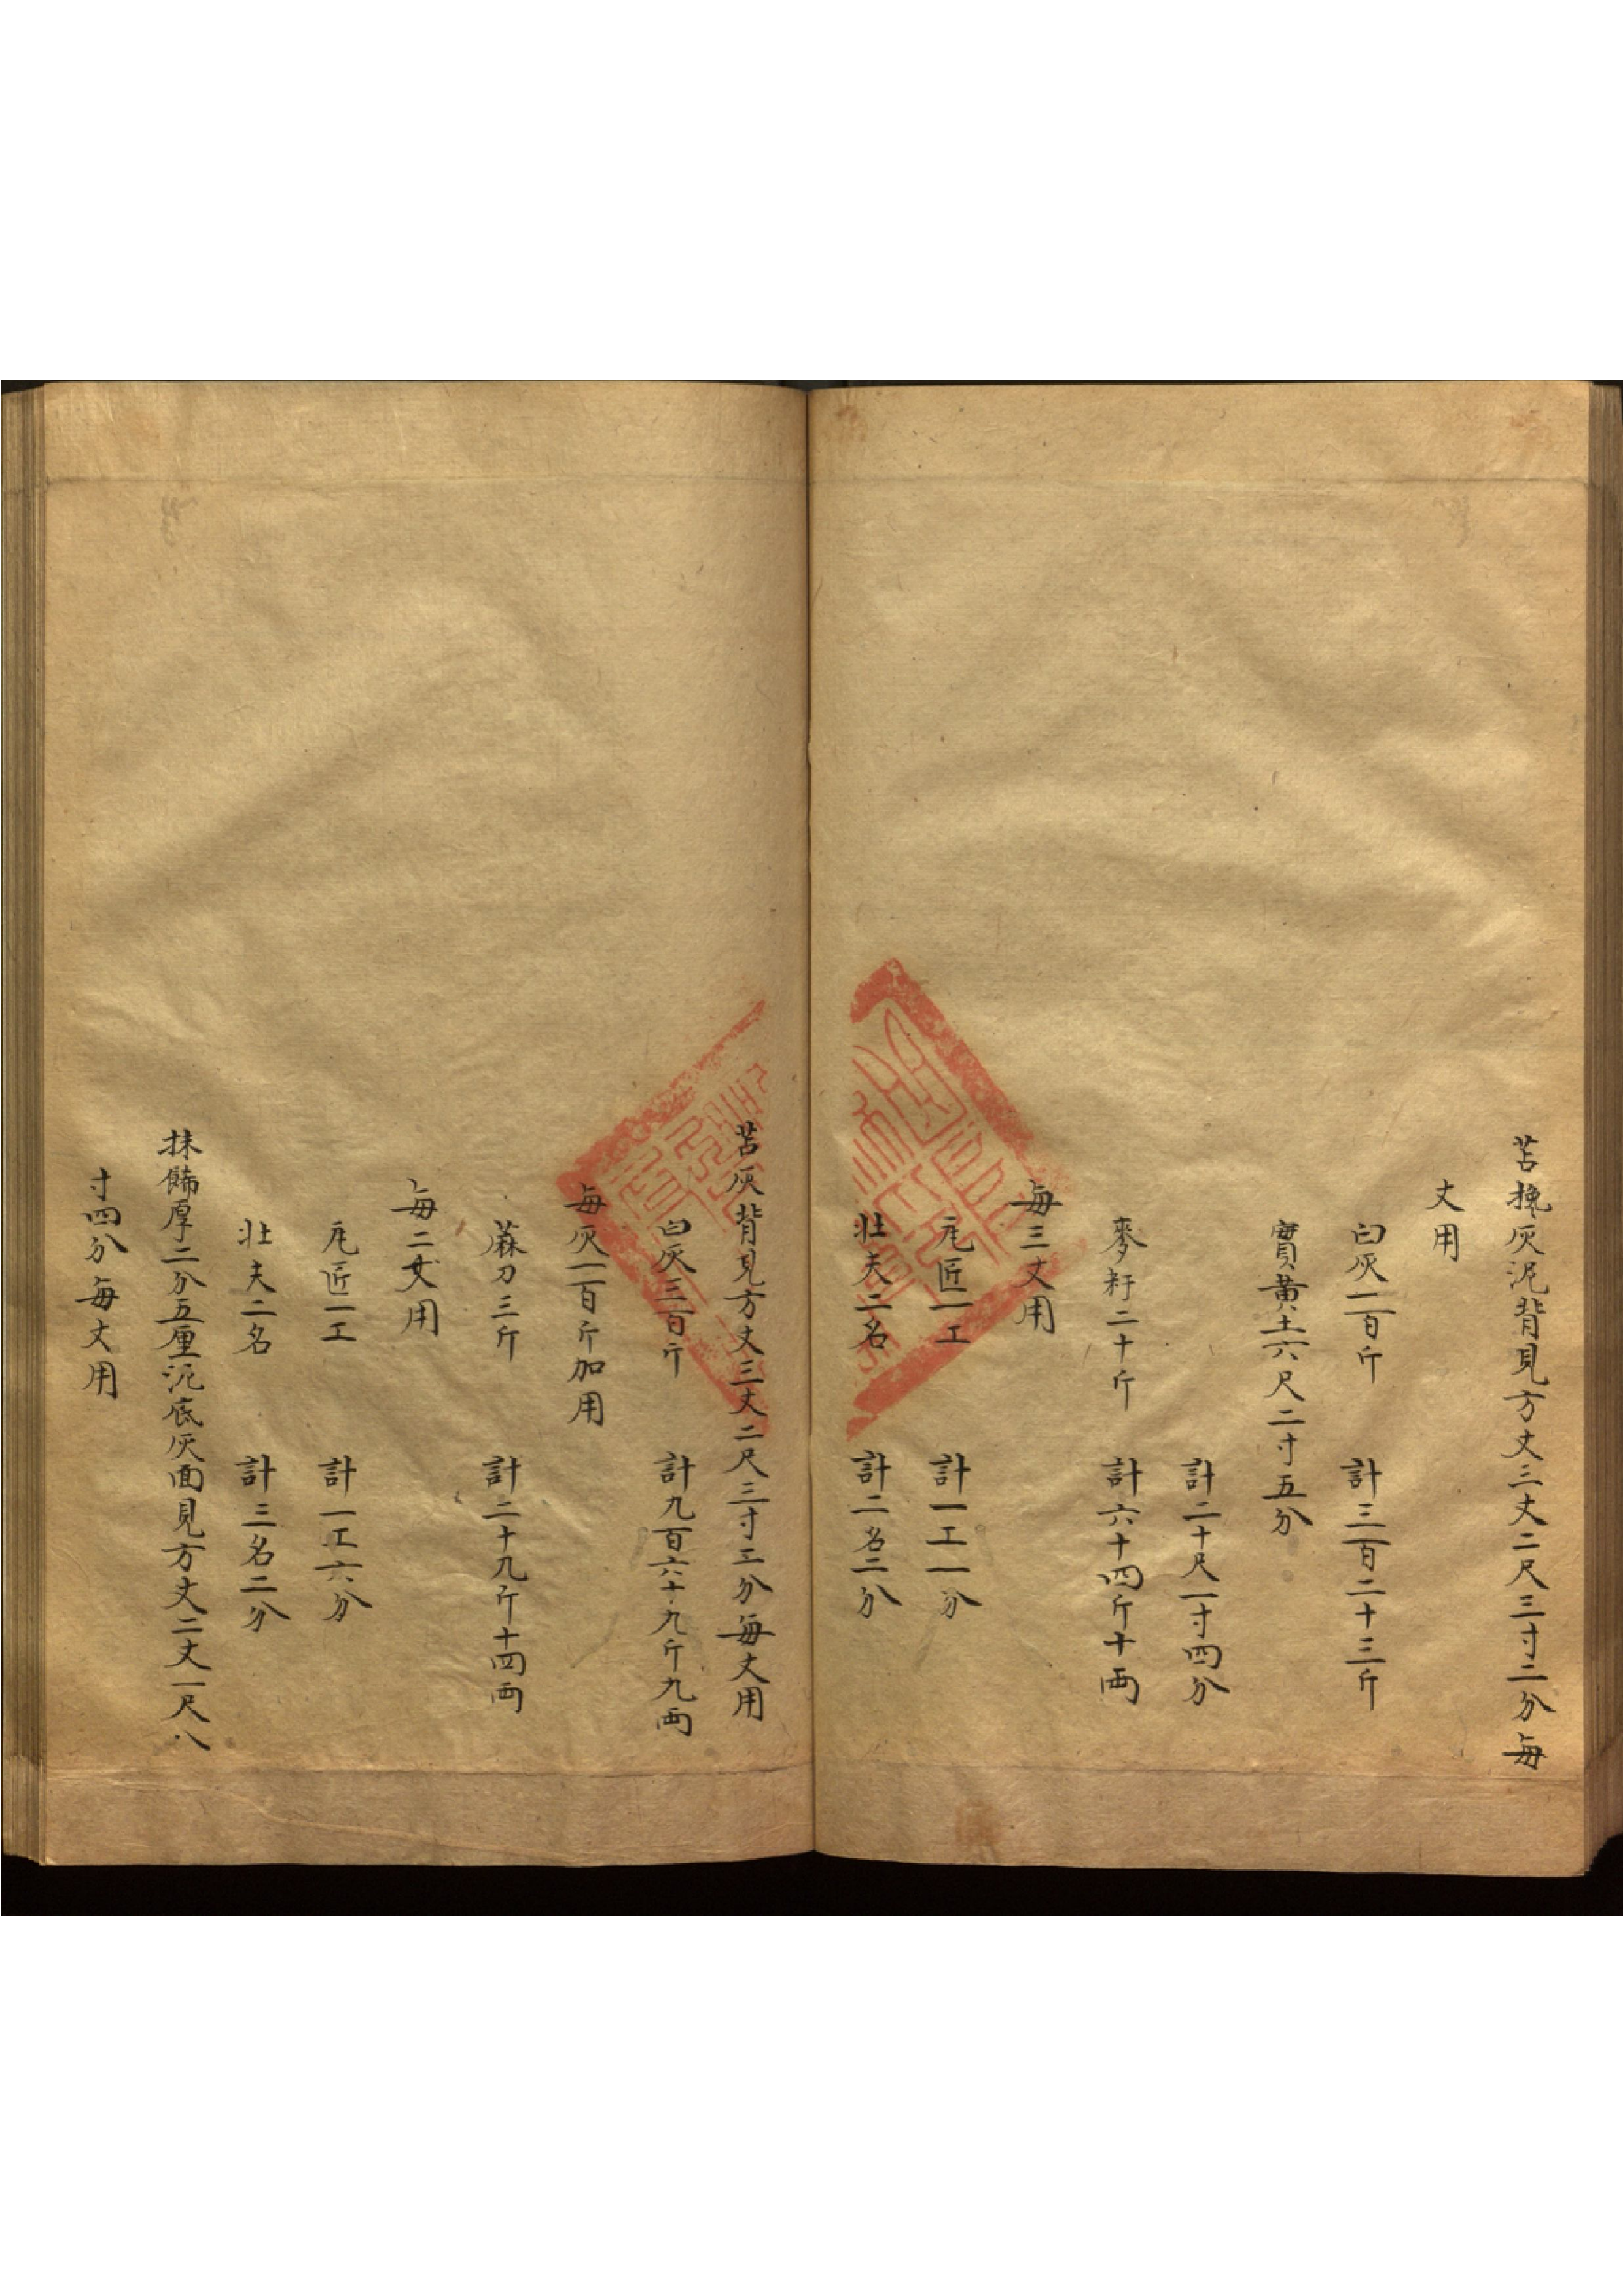 苫攙灰泥背見方丈三丈二尺三寸二分每
丈用
白灰一百斤　計三百二十三斤
實黃土六尺二寸五分
計二十尺一寸四分
麥籽二十斤　計六十四斤十兩
每三丈用
瓦匠一工　計一工一分
壯夫二名　計二名二分
苫灰背見方丈三丈二尺三寸二分每丈用
白灰三百斤　計九百六十九斤九兩
每灰一百斤加用
蔴刀三斤　計二十九斤十四兩
每二丈用
瓦匠一工　計一工六分
壯夫二名　計三名二分
抹飾厚二分五厘泥底灰面見方丈二丈一尺八
寸四分每丈用